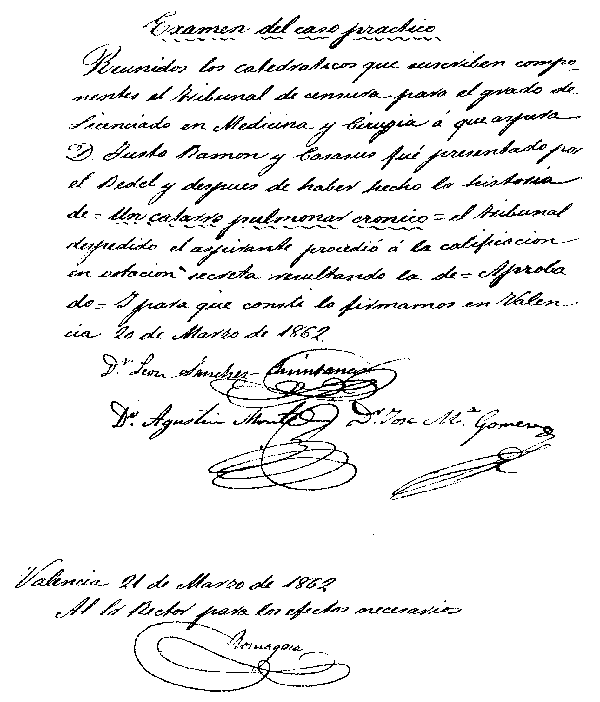 Examen del caso practico
Reunidos los catedraticos que suscriben compo-
nentes el Tribunal de censura para el grado de
Licenciado en Medicina y Cirugia á que aspira
D. Justo Ramon y Casasus fué presentado por
el Bedel y despues de haber hecho la historia
de = Un catarro pulmonar cronico = el Tribunal
despedido el aspirante procedió á la calificacion
en votacion secreta resultando la de = Aproba
do = Y para que conste lo firmamos en Valen-
cia 20 de Marzo de 1862.
Dr. Leon Sanchez Quintanar
Dr. Agustin Dr. Jose Ma. Gomez
Valencia 21 de Marzo de 1862
Al Sr Rector para los efectos necesarios
Romagosa